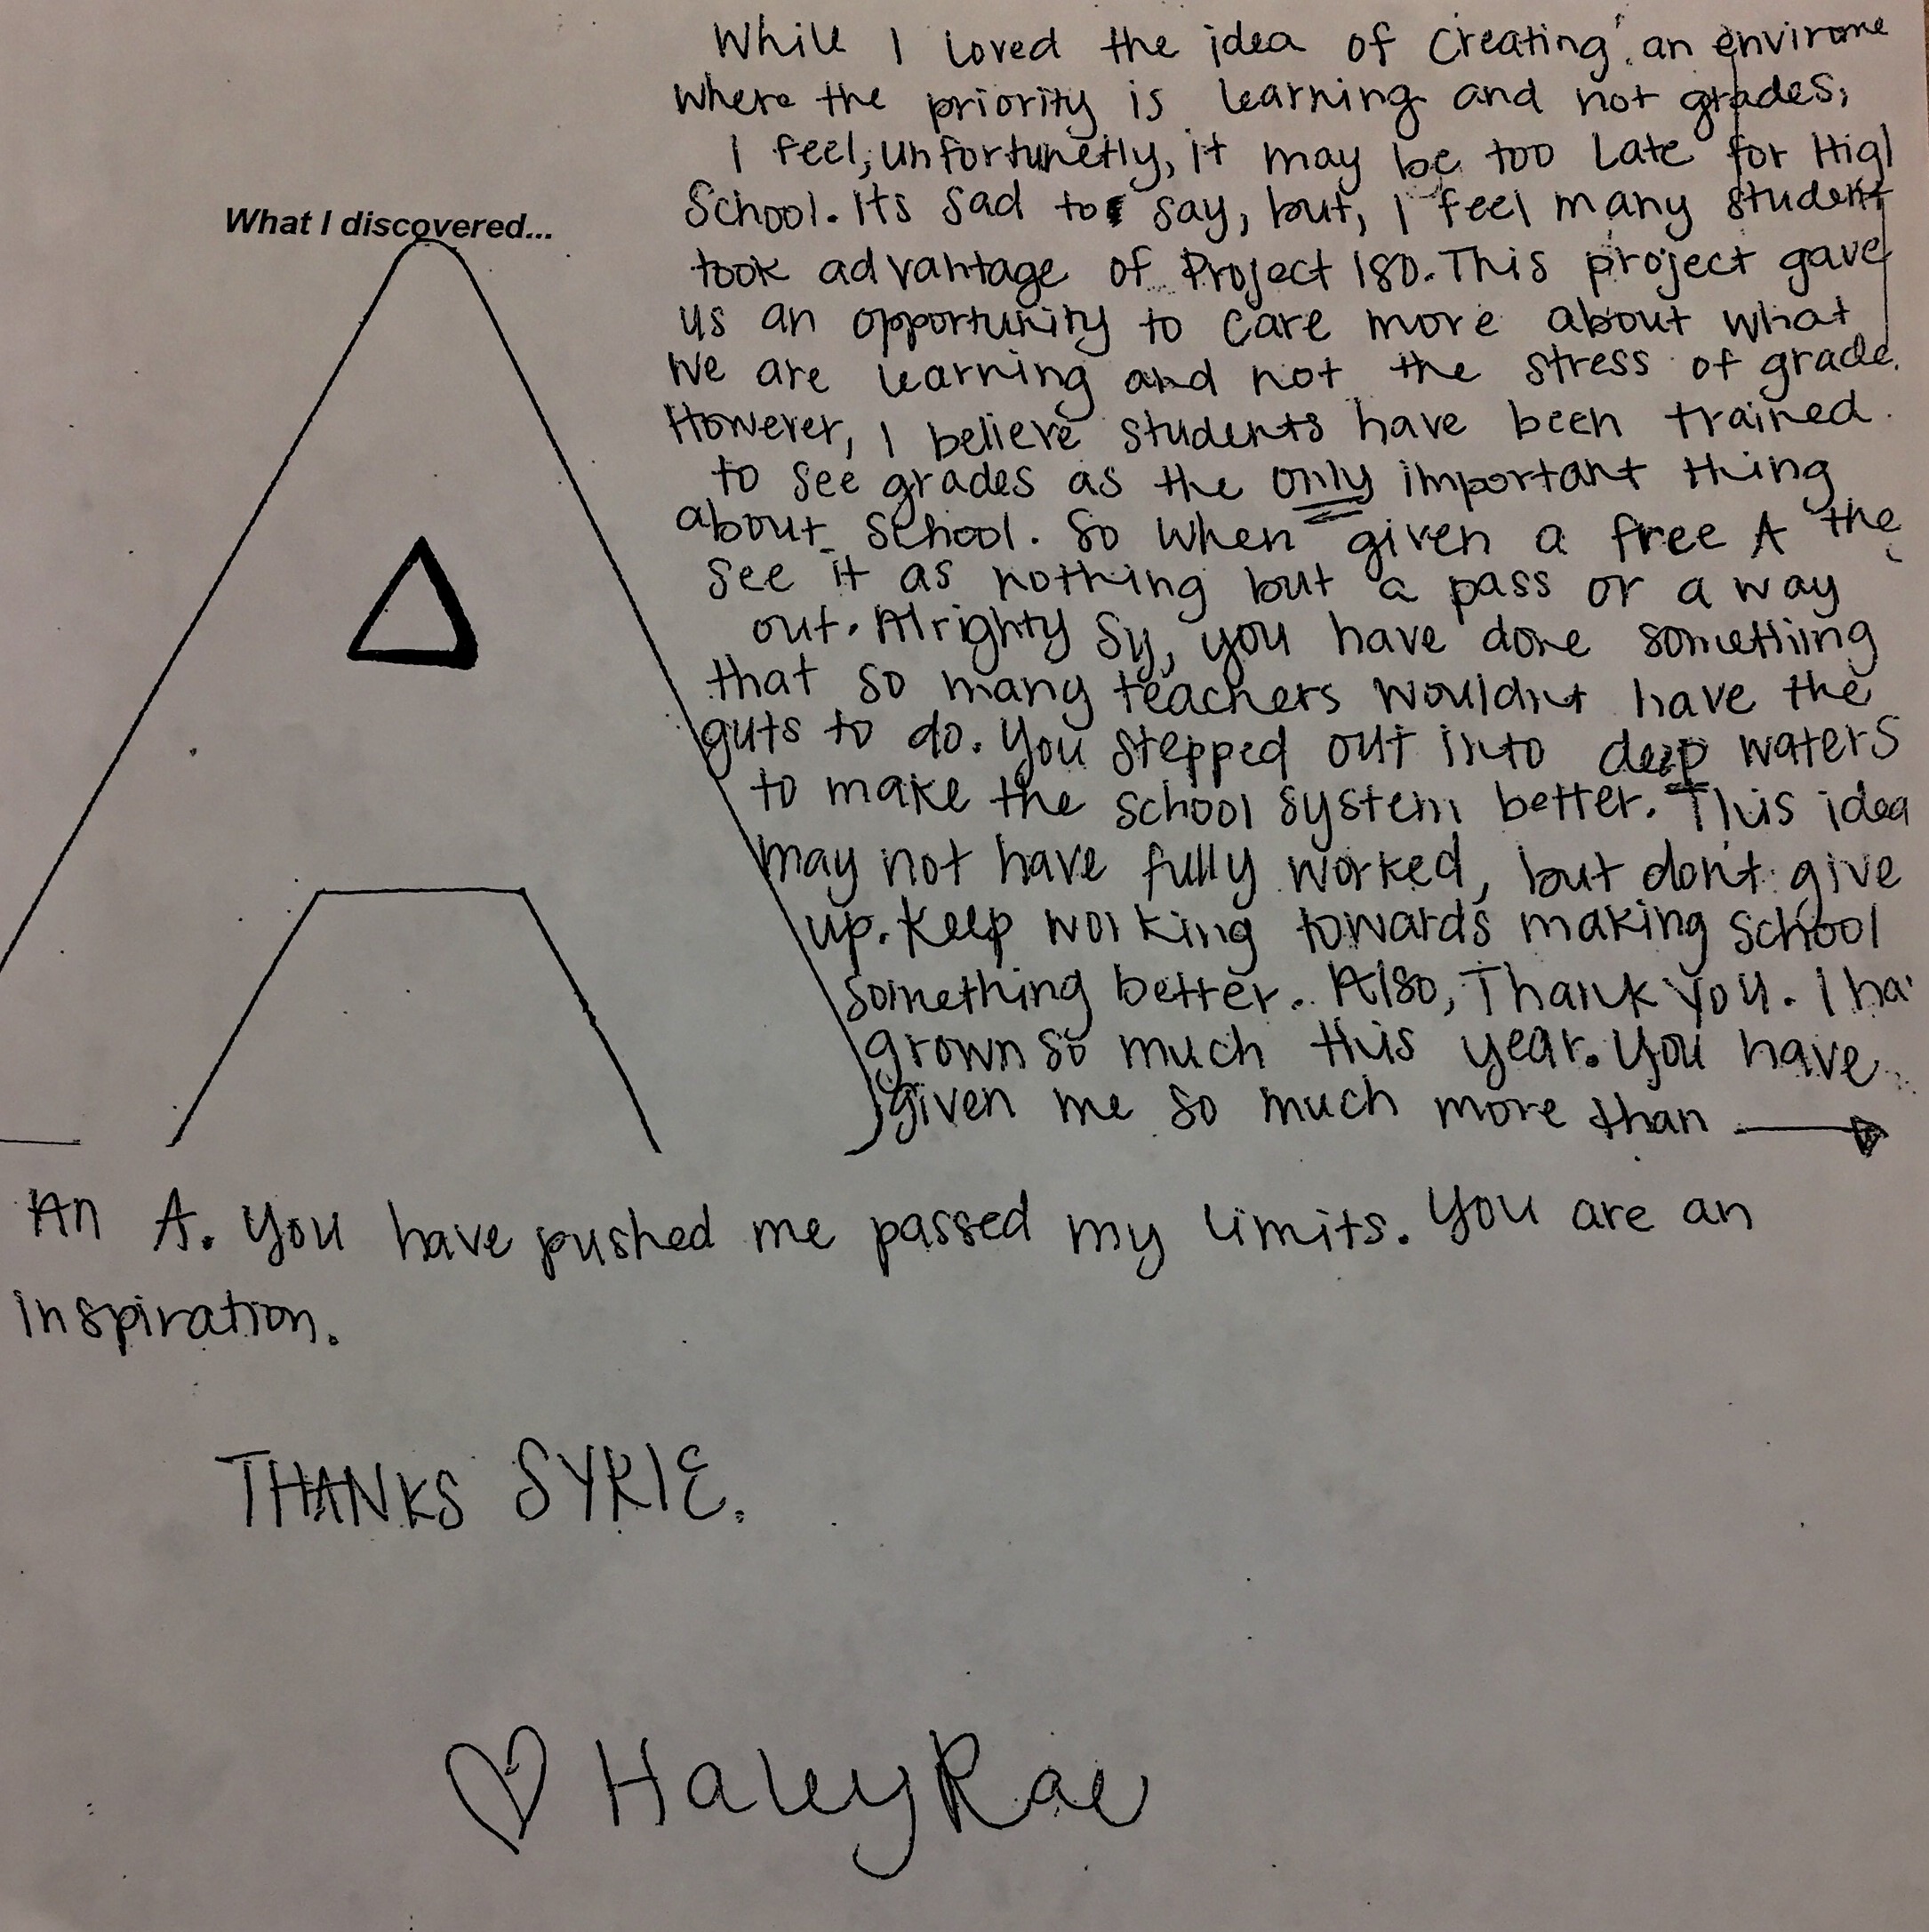 What I discovered...
While I loved the idea of creating an envirome
where the priority is learning and not grades,
I feel, unfortunetly, it may be too late for Higl
School. Its sad to say, but, I feel many student
took advantage of Project 180. This project gave
us an opportunity to care more about what
we are learning and not the stress of grade.
However, I believe students have been trained
to see grades as the only important thing
about school. So when given a free A the
see it as nothing but a pass or a way
out. Alrighty Sy, you have done something
that so many teachers wouldn't have the
guts to do. You stepped out into deep waters
to make the school system better. This idea
may not have fully worked, but don't give
up. Keep working towards making school
something better. Also, Thank you. I ha
grown so much this year. You have
given me so much more than
An A. You have pushed me passed my limits. You are an
inspiration.
THANKS SYRIE.
Haley Rae